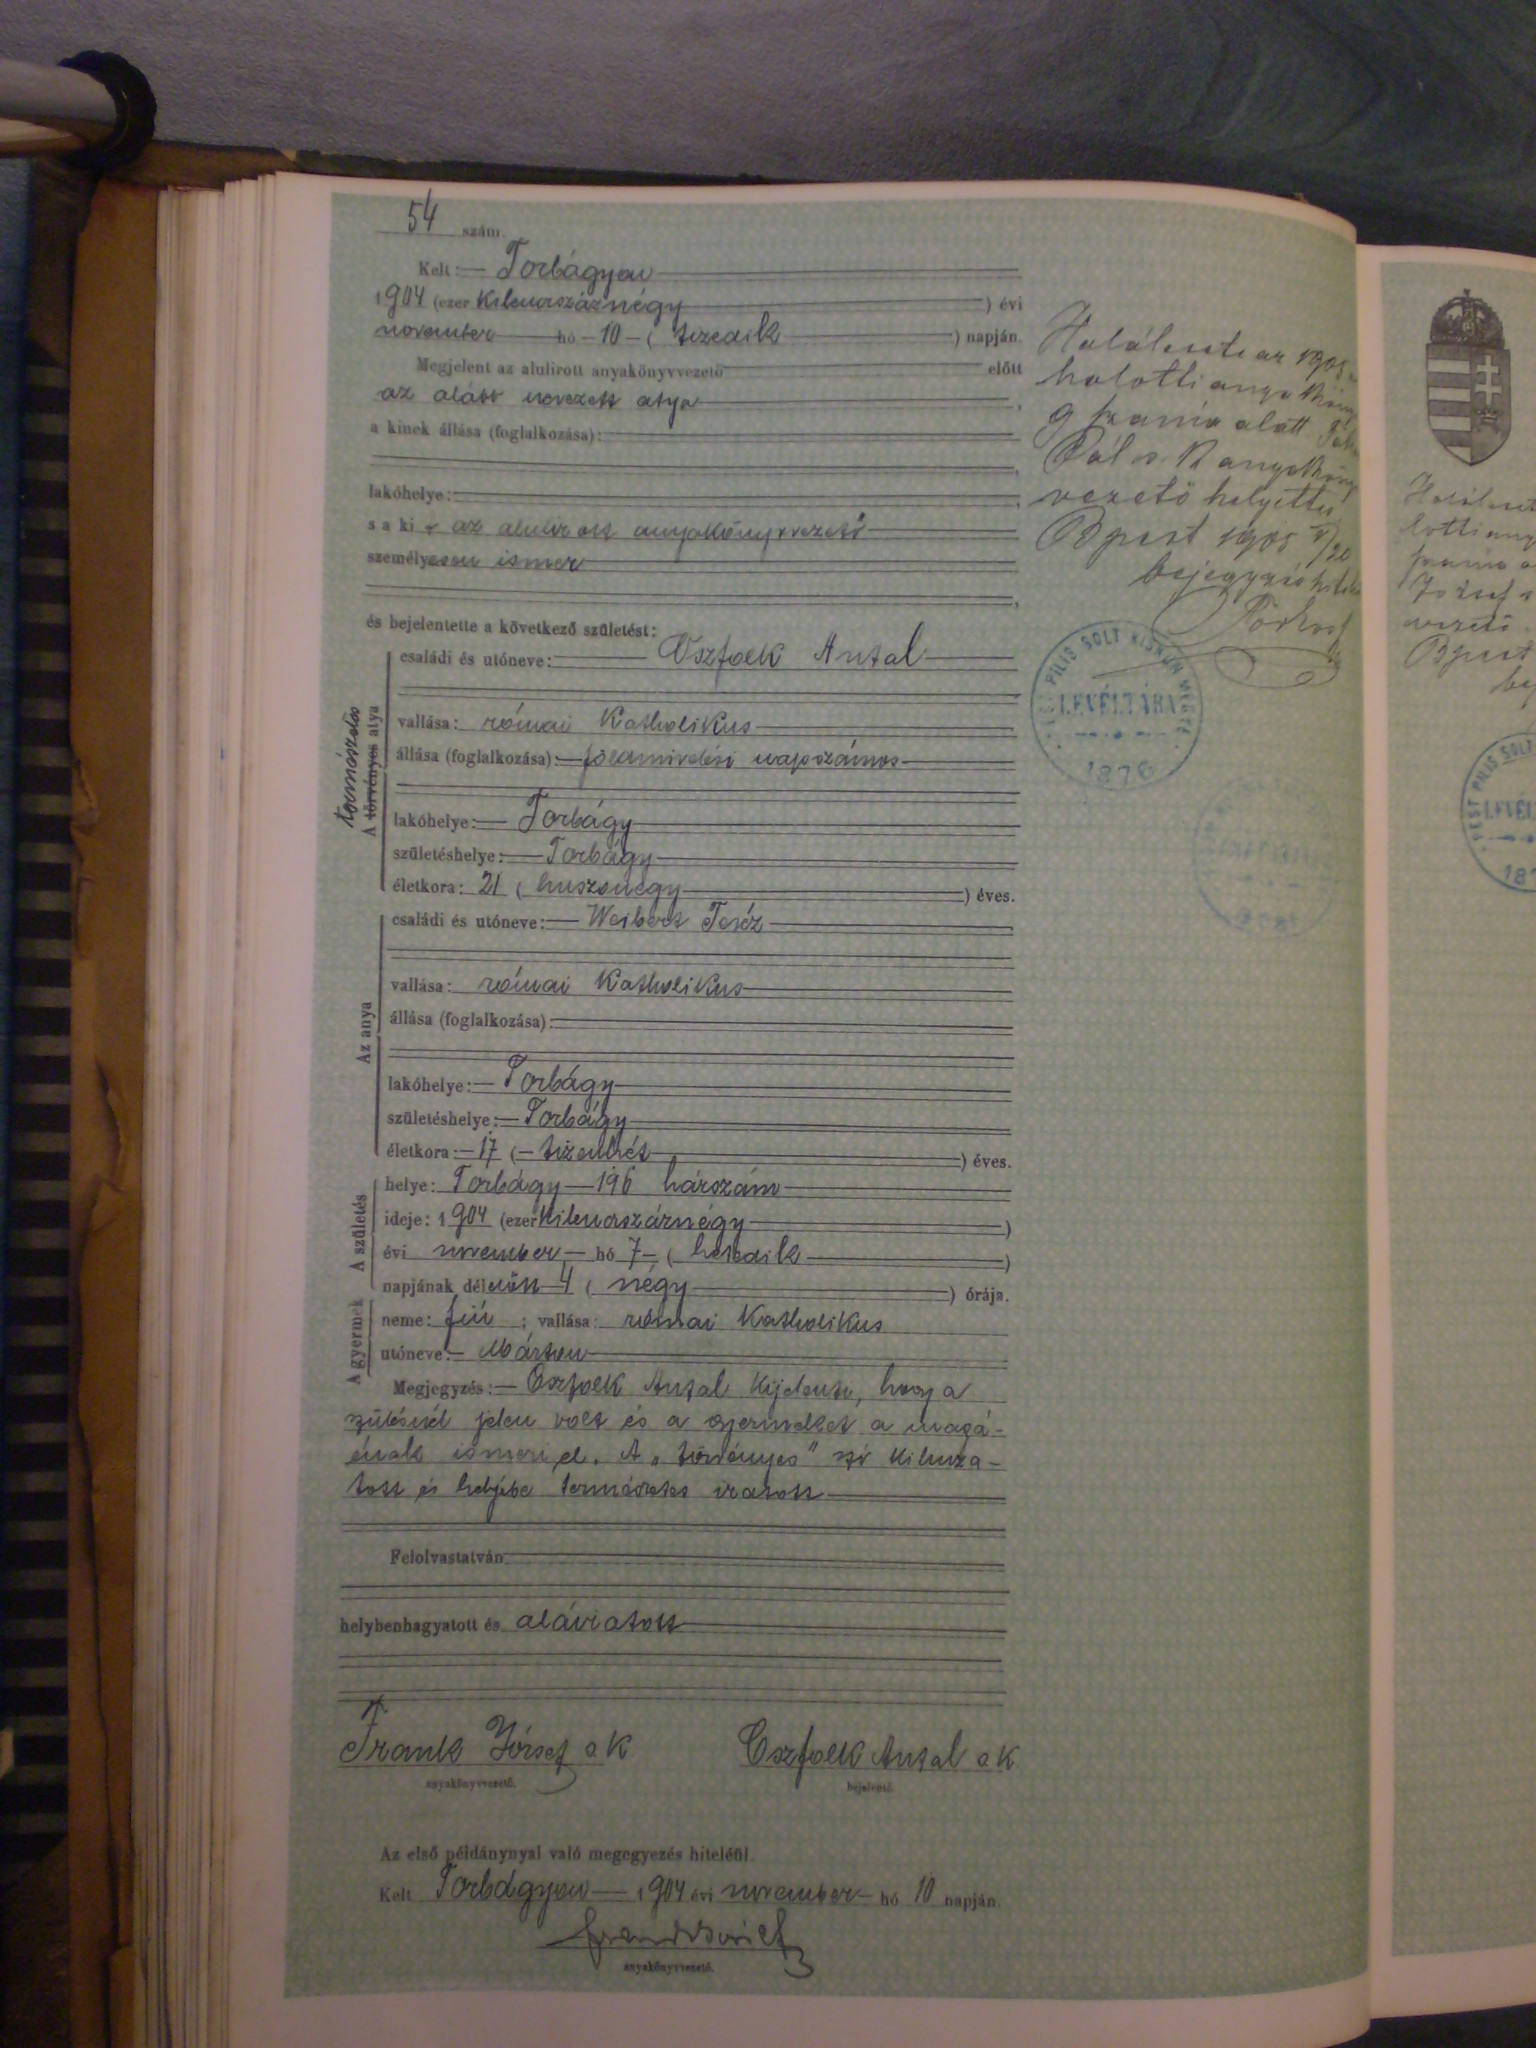 54 szám.
Kelt: Torbágyon
1904 (ezer kilencszáznégy) évi
november hó 10 (tizedik) napján.
Megjelent az alulirott anyakönyvvezető előtt
az alább nevezett atya,
a kinek állása (foglalkozása):
lakóhelye:
s a ki t az alulirott anyakönyvvezető
személyesen ismer
és bejelentette a következő születést:
természetes
A törvényes atya
családi és utóneve: Oszfolk Antal
vallása: római katholikus
állása (foglalkozása): földmivelési napszámos
lakóhelye: Torbágy
születéshelye: Torbágy
életkora: 21 (huszonégy) éves.
Az anya
családi és utóneve: Weibert Teréz
vallása: római katholikus
állása (foglalkozása):
lakóhelye: Torbágy
születéshelye: Torbágy
életkora: 17 (tizenhét) éves.
A születés
helye: Torbágy 196 házszám
ideje: 1904 (ezer kilencszáznégy)
évi november hó 7 (hetedik)
napjának délelőtt 4 (négy) órája.
A gyermek
neme: fiú; vallása: római katholikus
utóneve: Márton
Megjegyzés: Oszfolk Antal kijelenti, hogy a
szülésnél jelen volt és a gyermeket a magá-
énak ismeri el. A „törvényes" szó kihuza-
tott és helyébe természetes iratott
Felolvastatván
helybenhagyatott és aláiratott
Frank József s k
anyakönyvvezető.
Oszfolk Antal s k
bejelentő.
Az első példánynyal való megegyezés hiteléül.
Kelt Torbágyon 1904 évi november hó 10 napján.
Frank József
anyakönyvvezető.
Halálesete az 1905
halotti anyakönyv
9 száma alatt
Pál s. k anyakönyv
vezető helyettes
Bpest 1905 V/20
bejegyzés
PEST PILIS SOLT KISKUN MEGYE
LEVÉLTÁRA
1876
Haláleset
lotti any
száma a
József s
vezető.
Bpest
be
PEST PILIS SOLT
LEVÉL
187